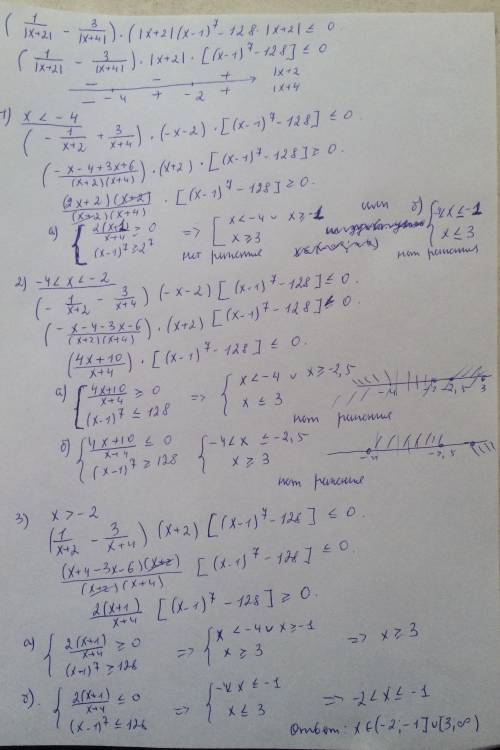 ( 1/|x+2| - 3/|x+4| ) · (|x+2|(x-1)^7 - 128 · |x+2| ≤ 0
( 1/|x+2| - 3/|x+4| ) · |x+2| · [(x-1)^7 - 128] ≤ 0
- - + |x+2
- -4 + -2 + |x+4
1) x < -4
( - 1/(x+2) + 3/(x+4) ) · (-x-2) · [(x-1)^7 - 128] ≤ 0.
( (-x-4+3x+6)/((x+2)(x+4)) ) · (x+2) · [(x-1)^7 - 128] ≥ 0.
(2x+2)(x+2)/((x+2)(x+4)) · [(x-1)^7 - 128] ≥ 0.
а) { 2(x+1)/(x+4) ≥ 0 => [ x < -4 ∪ x ≥ -1 или б) { -4<x ≤ -1
(x-1)^7 ≥ 2^7 x ≥ 3 x ≤ 3
нет решения нет решения
2) -4 < x < -2
( - 1/(x+2) - 3/(x+4) ) (-x-2) [(x-1)^7 - 128] ≤ 0
( (-x-4-3x-6)/((x+2)(x+4)) ) · (x+2) [(x-1)^7 - 128] ≤ 0.
( (4x+10)/(x+4) ) · [(x-1)^7 - 128] ≤ 0.
а) { (4x+10)/(x+4) ≥ 0 => { x < -4 ∪ x ≥ -2,5 -4 -2,5 3
(x-1)^7 ≤ 128 x ≤ 3
нет решения
б) { (4x+10)/(x+4) ≤ 0 { -4<x ≤ -2,5 -4 -2,5
(x-1)^7 ≥ 128 x ≥ 3
нет решения
3) x > -2
( 1/(x+2) - 3/(x+4) ) (x+2) [(x-1)^7 - 128] ≤ 0.
(x+4-3x-6)(x+2)/((x+2)(x+4)) [(x-1)^7 - 128] ≤ 0.
2(x+1)/(x+4) [(x-1)^7 - 128] ≥ 0.
а) { 2(x+1)/(x+4) ≥ 0 => { x < -4 ∪ x ≥ -1 => x ≥ 3
(x-1)^7 ≥ 128 x ≥ 3
б) { 2(x+1)/(x+4) ≤ 0 => { -4<x ≤ -1 => -2 < x ≤ -1
(x-1)^7 ≤ 128 x ≤ 3
Ответ: x∈(-2;-1]∪[3,∞)